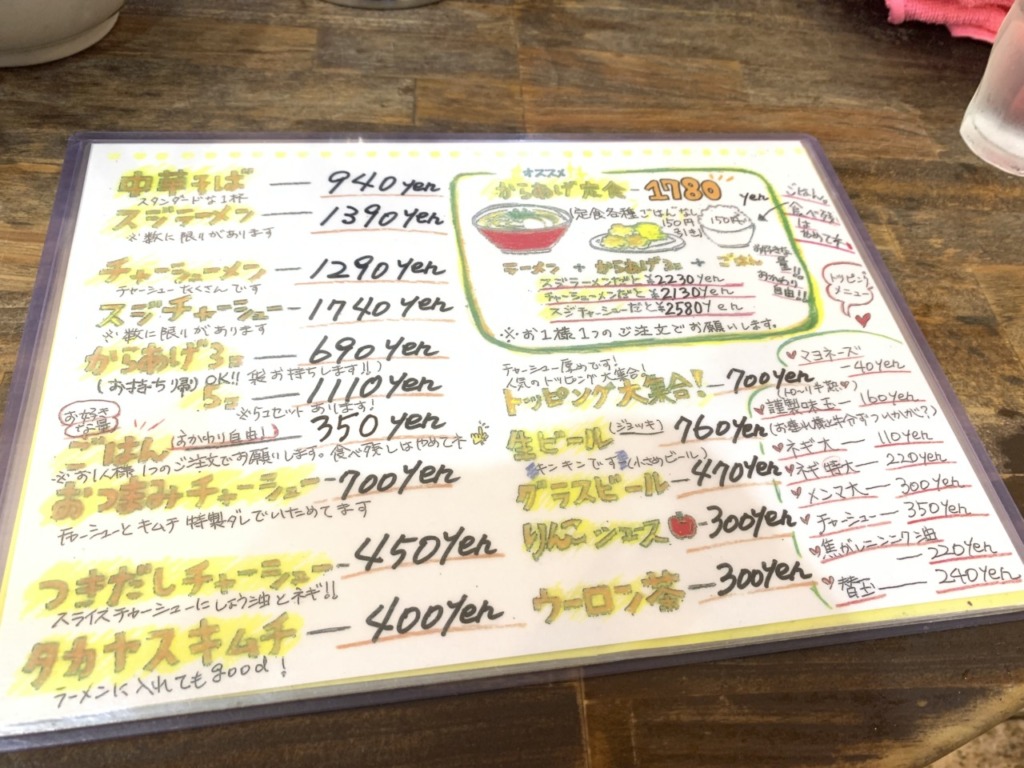 中華そば — 940yen
スタンダードな1杯
スジラーメン — 1390yen
※数に限りがあります
チャーシューメン — 1290yen
チャーシューたくさんです
スジチャーシュー — 1740yen
※数に限りがあります
からあげ3コ — 690yen
(お持ち帰りOK!! 袋お持ちします!!)
5コ — 1110yen
※5コセットあります!
お好きな量
ごはん (おかわり自由!) — 350yen
※お1人様1つのご注文でお願いします。食べ残しはやめてネ
おつまみチャーシュー — 700yen
チャーシューとキムチ 特製ダレでいためてます
つきだしチャーシュー — 450yen
スライスチャーシューにしょう油とネギ!!
タカヤスキムチ — 400yen
ラーメンに入れてもgood!
オススメ
からあげ定食 — 1780yen
定食各種ごはんなし
150円引き
150円
ごはんの
食べ残し
はやめてネ
お好きな量
おかわり
自由!!
ラーメン + からあげ3コ + ごはん
スジラーメンだと ¥2230yen
チャーシューメンだと ¥2130yen
スジチャーシューだと ¥2580yen
※お1様1つのご注文でお願いします。
チャーシュー厚めです!
人気のトッピング大集合!
トッピング大集合! — 700yen
生ビール (ジョッキ) 760yen
キンキンです (小さめビール)
グラスビール — 470yen
りんごジュース — 300yen
ウーロン茶 — 300yen
トッピングメニュー
マヨネーズ — 40yen
(トロ〜リ半熟)
謹製味玉 — 160yen
ネギ大 — 110yen
ネギ特大 — 220yen
メンマ大 — 300yen
チャーシュー — 350yen
焦がしニンニク油 — 220yen
替玉 — 240yen